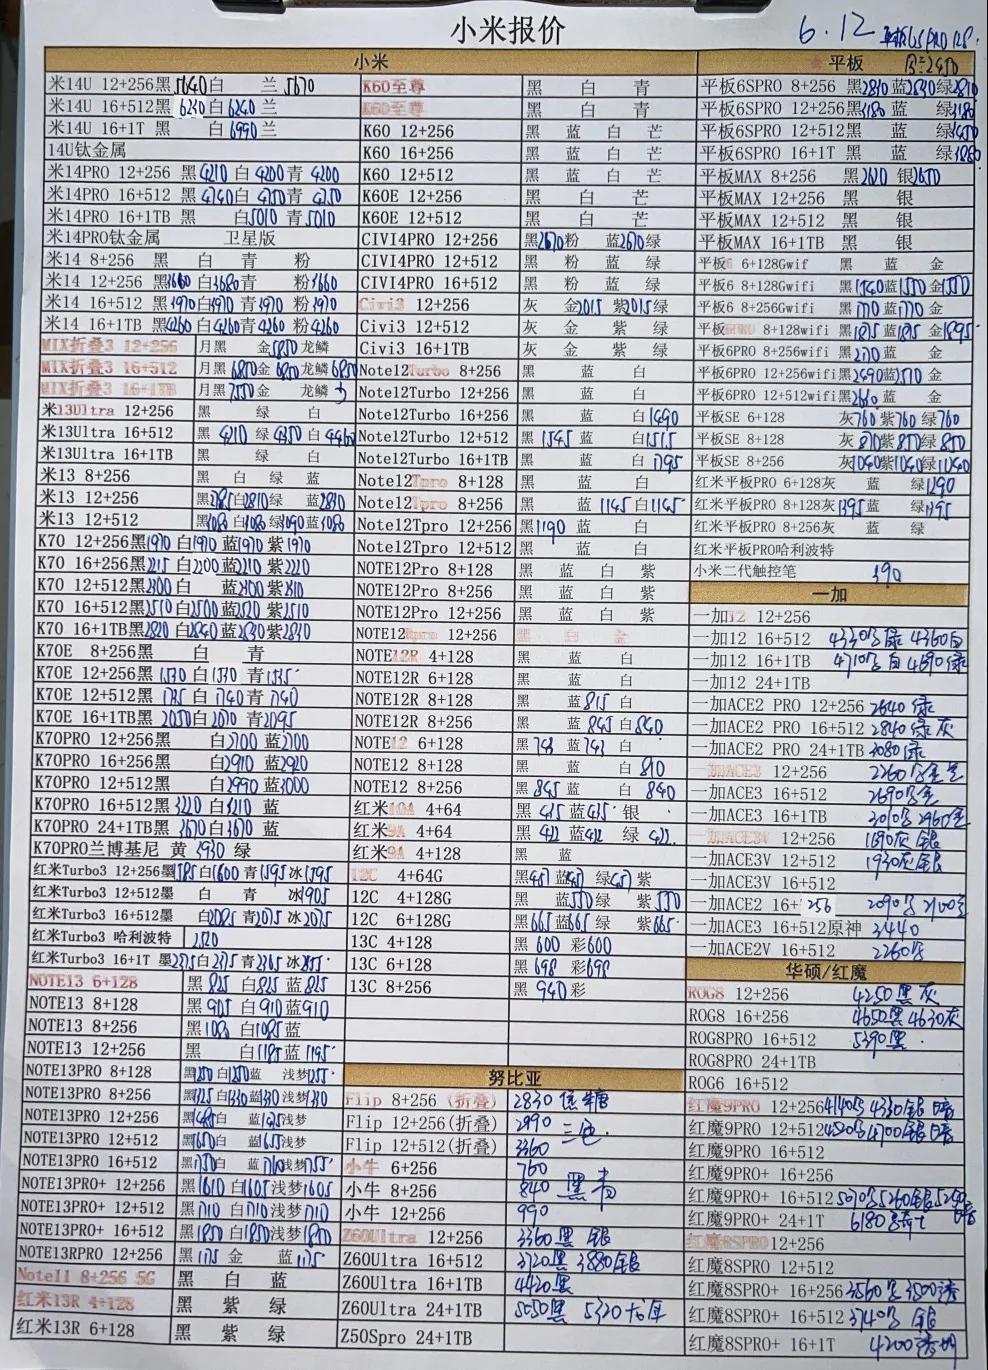 小米报价
6.12
小米
米14U 12+256黑5640白 兰5670
米14U 16+512黑6230白6240兰
米14U 16+1T 黑 白6990兰
14U钛金属
米14PRO 12+256 黑4210白4200青4200
米14PRO 16+512 黑4740白4750青4750
米14PRO 16+1TB 黑 白5010青5010
米14PRO钛金属 卫星版
米14 8+256 黑 白 青 粉
米14 12+256 黑3660白3680青 粉3660
米14 16+512 黑3970白3970青3970粉3970
米14 16+1TB 黑4260白4260青4260粉4260
MIX折叠3 12+256 月黑 金5850龙鳞
MIX折叠3 16+512 月黑6850金6850龙鳞6850
MIX折叠3 16+1TB 月黑7550金 龙鳞
米13Ultra 12+256 黑 绿 白
米13Ultra 16+512 黑4210绿4350白4460
米13Ultra 16+1TB 黑 绿 白
米13 8+256 黑 白 绿 蓝
米13 12+256 黑2785白2810绿 蓝2830
米13 12+512 黑3080白3080绿3090蓝3080
K70 12+256黑1970白1970蓝1970紫1970
K70 16+256黑2215白2200蓝2210紫2220
K70 12+512黑2300白 蓝2300紫2310
K70 16+512黑2510白2500蓝2520紫2510
K70 16+1TB黑2820白2840蓝2830紫2830
K70E 8+256黑 白 青
K70E 12+256黑1530白1530青1535
K70E 12+512黑1735白1740青1740
K70E 16+1TB黑2050白2070青2095
K70PRO 12+256黑 白2700蓝2700
K70PRO 16+256黑 白2910蓝2920
K70PRO 12+512黑 白2990蓝3000
K70PRO 16+512黑3220白3210蓝
K70PRO 24+1TB黑3670白3670蓝
K70PRO兰博基尼 黄3930绿
红米Turbo3 12+256墨1585白1600青1595冰1595
红米Turbo3 12+512墨 白 青 冰1905
红米Turbo3 16+512墨 白2085青2075冰2075
红米Turbo3 哈利波特 2520
红米Turbo3 16+1T 墨2375白2375青2365冰2355
NOTE13 6+128 黑825白825蓝825
NOTE13 8+128 黑905白910蓝910
NOTE13 8+256 黑1080白1085蓝
NOTE13 12+256 黑 白1185蓝1195
NOTE13PRO 8+128 黑1250白1250蓝 浅梦1255
NOTE13PRO 8+256 黑1325白1330蓝1330浅梦1330
NOTE13PRO 12+256 黑1485白 蓝1485浅梦
NOTE13PRO 12+512 黑1650白 蓝1655浅梦
NOTE13PRO 16+512 黑1750白 蓝1760浅梦1755
NOTE13PRO+ 12+256 黑1610白1605浅梦1605
NOTE13PRO+ 12+512 黑1710白1710浅梦1710
NOTE13PRO+ 16+512 黑1850白1850浅梦1850
NOTE13RPRO 12+256 黑1175金 蓝1175
Note11 8+256 5G 黑 白 蓝
红米13R 4+128 黑 紫 绿
红米13R 6+128 黑 紫 绿
K60至尊 黑 白 青
K60至尊 黑 白 青
K60 12+256 黑 蓝 白 芒
K60 16+256 黑 蓝 白 芒
K60 12+512 黑 蓝 白 芒
K60E 12+256 黑 白 芒
K60E 12+512 黑 白 芒
CIVI4PRO 12+256 黑2670粉 蓝2670绿
CIVI4PRO 12+512 黑 粉 蓝 绿
CIVI4PRO 16+512 黑 粉 蓝 绿
Civi3 12+256 灰 金2015紫2015绿
Civi3 12+512 灰 金 紫 绿
Civi3 16+1TB 灰 金 紫 绿
Note12Turbo 8+256 黑 蓝 白
Note12Turbo 12+256 黑 蓝 白
Note12Turbo 16+256 黑 蓝 白1490
Note12Turbo 12+512 黑1545蓝 白1515
Note12Turbo 16+1TB 黑 蓝 白1795
Note12Tpro 8+128 黑 蓝 白
Note12Tpro 8+256 黑 蓝1145白1145
Note12Tpro 12+256 黑1190蓝 白
Note12Tpro 12+512 黑 蓝 白
NOTE12Pro 8+128 黑 蓝 白 紫
NOTE12Pro 8+256 黑 蓝 白 紫
NOTE12Pro 12+256 黑 蓝 白 紫
NOTE12Rpro 12+256 黑 白 金
NOTE12R 4+128 黑 蓝 白
NOTE12R 6+128 黑 蓝 白
NOTE12R 8+128 黑 蓝815白
NOTE12R 8+256 黑 蓝845白840
NOTE12 6+128 黑743蓝743白
NOTE12 8+128 黑 蓝 白810
NOTE12 8+256 黑845蓝 白840
红米10A 4+64 黑435蓝435银
红米9A 4+64 黑422蓝422绿422
红米9A 4+128 黑 蓝
12C 4+64G 黑451蓝451绿451紫
12C 4+128G 黑 蓝550绿 紫550
12C 6+128G 黑665蓝665绿 紫665
13C 4+128 黑600彩600
13C 6+128 黑698彩698
13C 8+256 黑940彩
努比亚
Flip 8+256(折叠) 2830焦糖
Flip 12+256(折叠) 2990三色
Flip 12+512(折叠) 3360
小牛 6+256 760
小牛 8+256 840黑青
小牛 12+256 990
Z60Ultra 12+256 3360黑 银
Z60Ultra 16+512 3720黑3880银
Z60Ultra 16+1TB 4420黑
Z60Ultra 24+1TB 5050黑5320
Z50Spro 24+1TB
平板
平板6SPRO 8+256 黑2830蓝2830绿2810
平板6SPRO 12+256黑3180蓝 绿3180
平板6SPRO 12+512黑 蓝 绿3450
平板6SPRO 16+1T 黑 蓝 绿3880
平板MAX 8+256 黑2620银2650
平板MAX 12+256 黑 银
平板MAX 12+512 黑 银
平板MAX 16+1TB 黑 银
平板6 6+128Gwif 黑 蓝 金
平板6 8+128Gwifi 黑1540蓝1550金1550
平板6 8+256Gwifi 黑1770蓝1770金
平板6PRO 8+128wifi 黑1875蓝1895金1895
平板6PRO 8+256wifi 黑2170蓝 金
平板6PRO 12+256wifi黑2490蓝2510金
平板6PRO 12+512wifi黑2660蓝 金
平板SE 6+128 灰760紫760绿760
平板SE 8+128 灰870紫850绿850
平板SE 8+256 灰1040紫1040绿1040
红米平板PRO 6+128灰 蓝 绿1290
红米平板PRO 8+128灰1395蓝 绿1395
红米平板PRO 8+256灰 蓝 绿
红米平板PRO哈利波特
小米二代触控笔 390
一加
一加12 12+256
一加12 16+512 4330黑绿4360白
一加12 16+1TB 4710黑白4690绿
一加12 24+1TB
一加ACE2 PRO 12+256 2640绿
一加ACE2 PRO 16+512 2840绿灰
一加ACE2 PRO 24+1TB 3080绿
一加ACE3 12+256 2260
一加ACE3 16+512 2690
一加ACE3 16+1TB
一加ACE3V 12+256 1890灰 银
一加ACE3V 12+512 1930灰 银
一加ACE3V 16+512
一加ACE2 16+256 2090黑2100
一加ACE3 16+512原神 3440
一加ACE2V 16+512 2260
华硕/红魔
ROG8 12+256 4250黑灰
ROG8 16+256 4650黑4630灰
ROG8PRO 16+512 5390黑
ROG8PRO 24+1TB
ROG6 16+512
红魔9PRO 12+256 4140黑4330银暗
红魔9PRO 12+512 4520黑4700银暗
红魔9PRO 16+512
红魔9PRO+ 16+256
红魔9PRO+ 16+512 5070黑5260银
红魔9PRO+ 24+1T 6180骑士
红魔8SPRO 12+256
红魔8SPRO 12+512
红魔8SPRO+ 16+256 3560黑3500透
红魔8SPRO+ 16+512 3740黑 银
红魔8SPRO+ 16+1T 4200透明